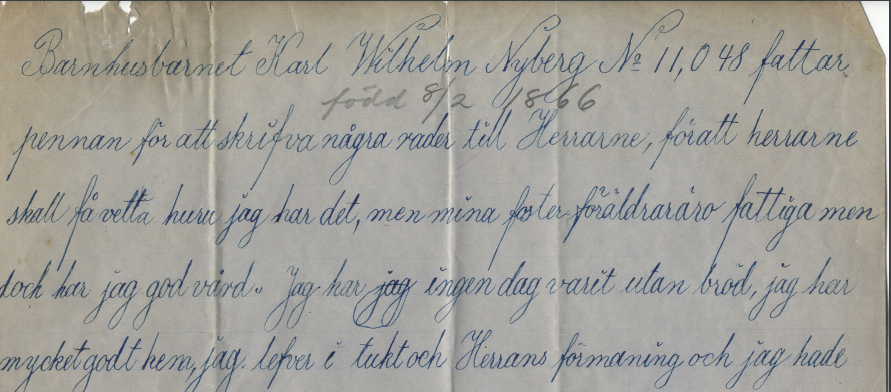 Barnhusbarnet Karl Wilhelm Nyberg № 11,048 fattar
född 8/2 1866
pennan för att skrifva några rader till Herrarne, föratt herrarne
skall få vetta huru jag har det, men mina foster-föräldraräro fattiga men
dock har jag god vård. Jag har jag ingen dag varit utan bröd, jag har
mycket godt hem, jag lefver i tukt och Herrans förmaning och jag hade